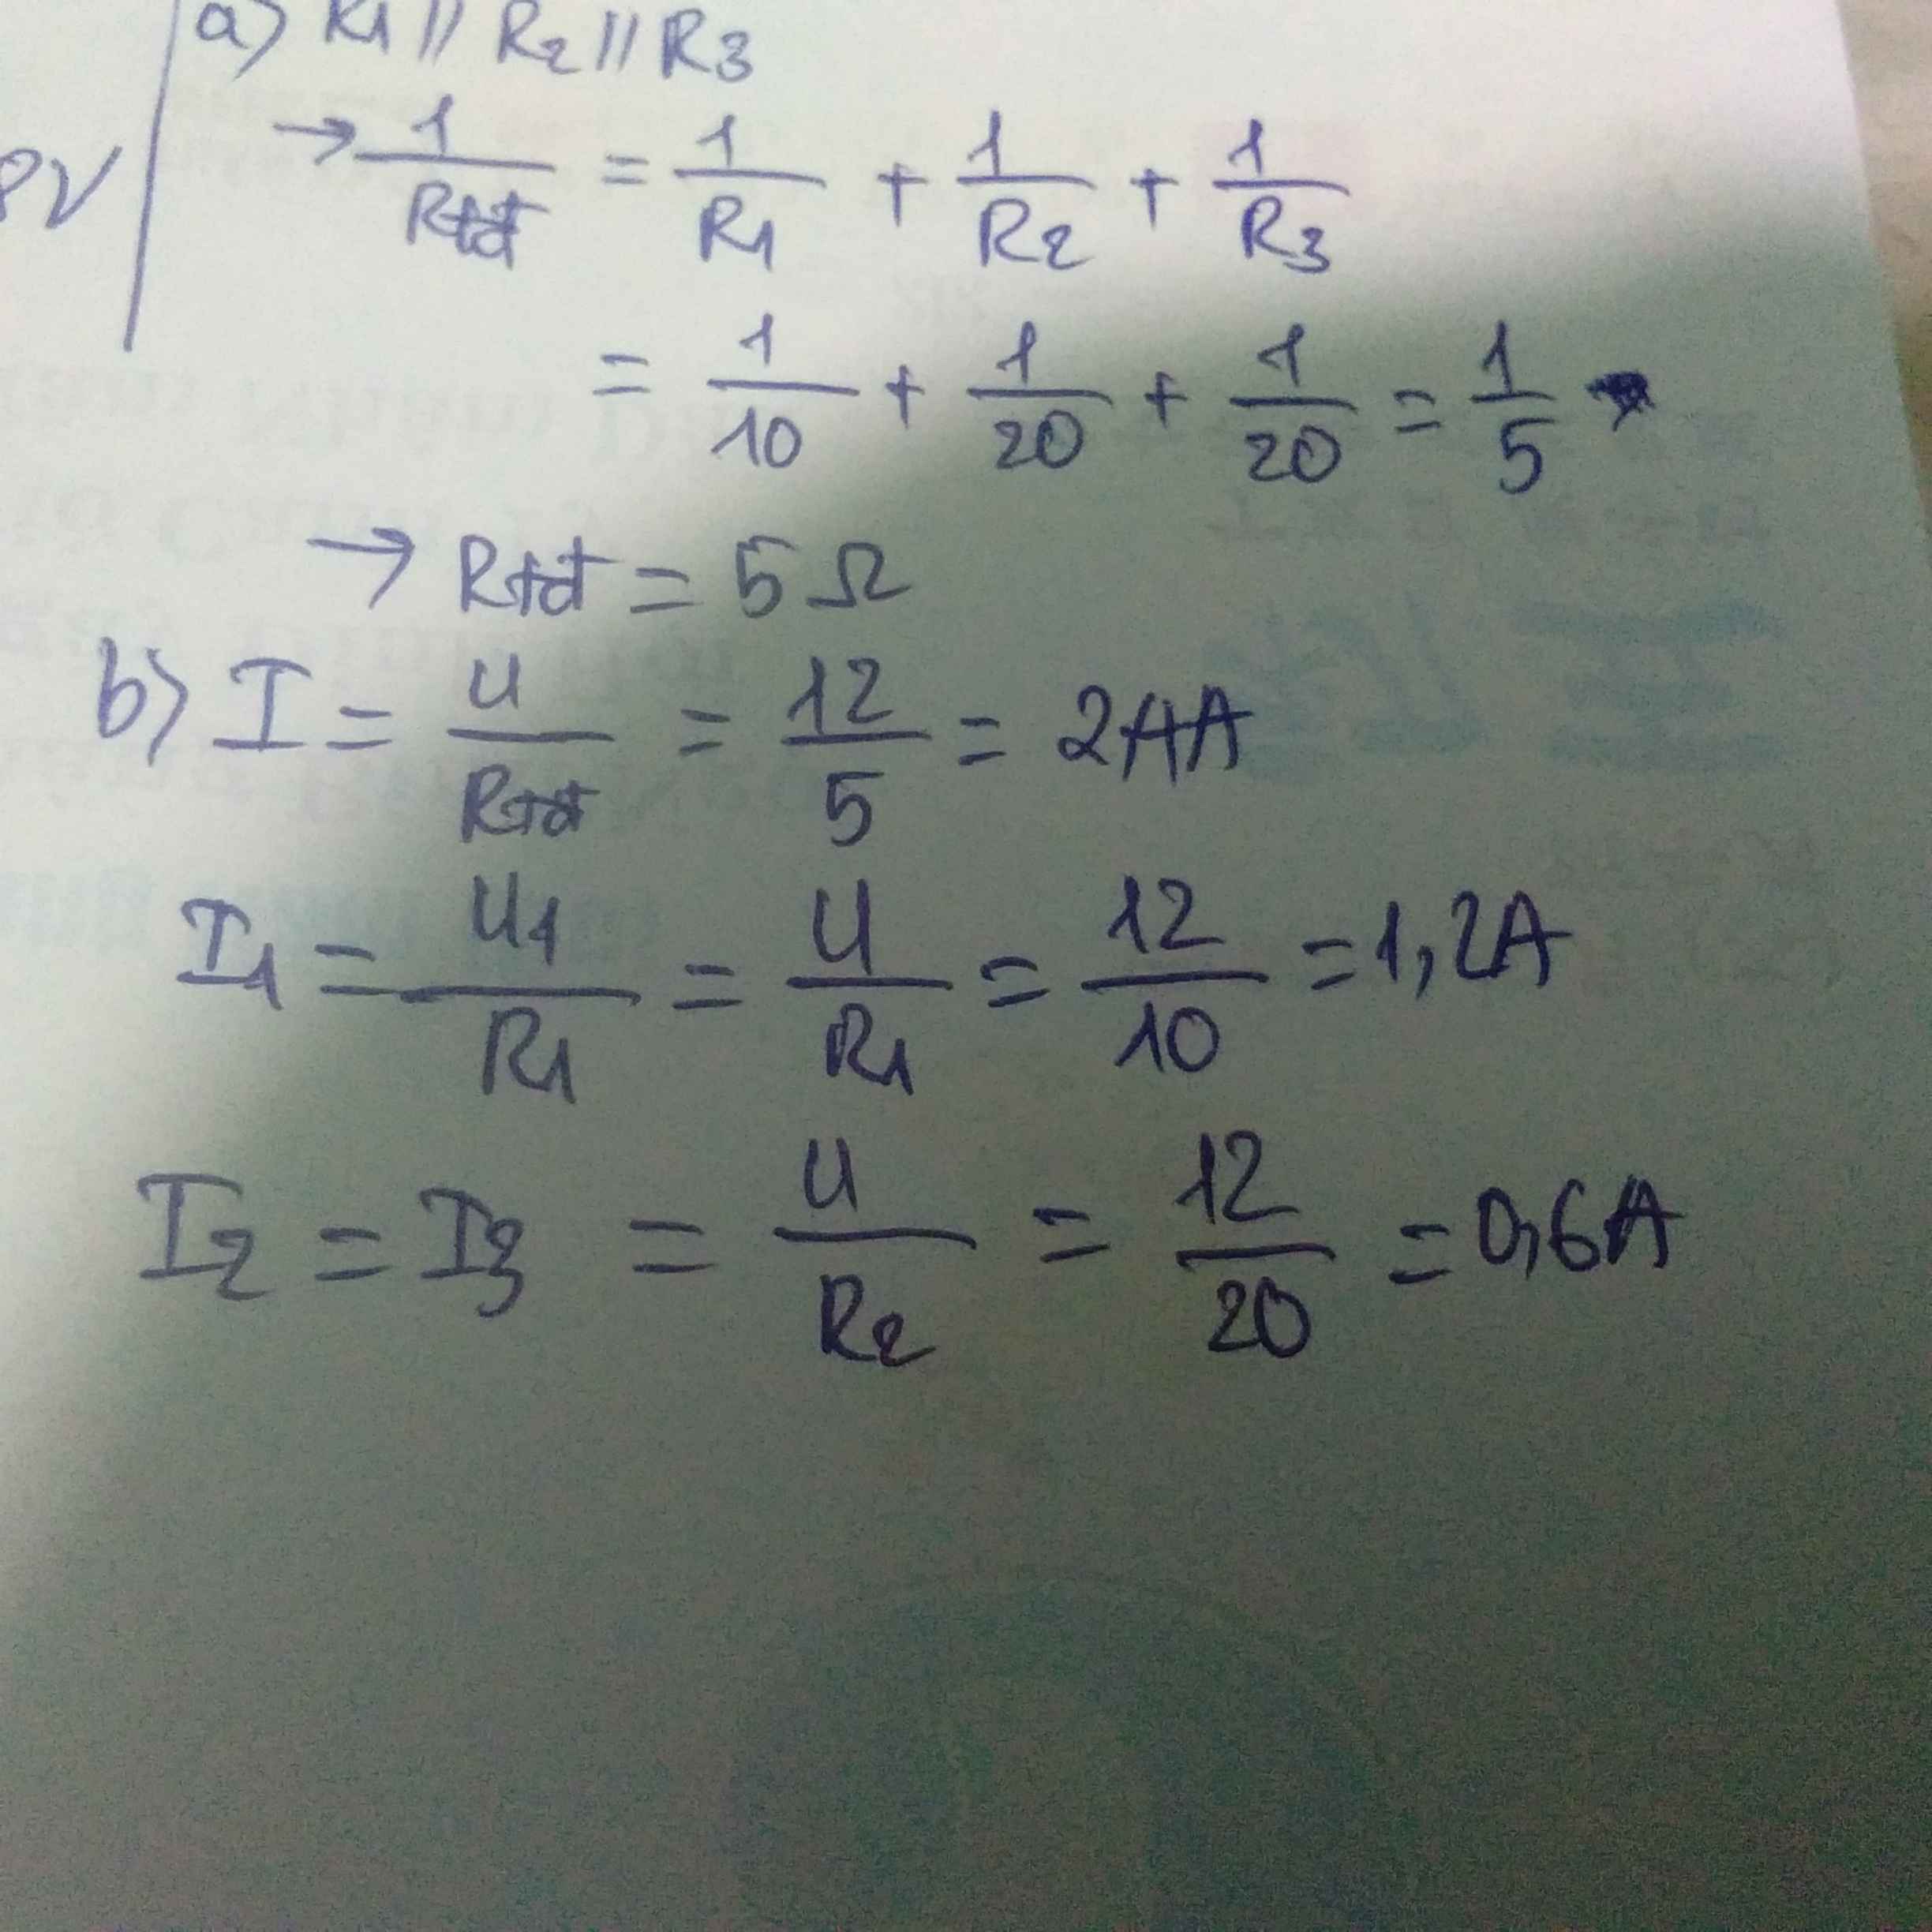 a) R1 // R2 // R3
→ 1/Rtđ = 1/R1 + 1/R2 + 1/R3
= 1/10 + 1/20 + 1/20 = 1/5
→ Rtđ = 5 Ω
b) I = U/Rtđ = 12/5 = 2,4A
I1 = U1/R1 = U/R1 = 12/10 = 1,2A
I2 = I3 = U/R2 = 12/20 = 0,6A